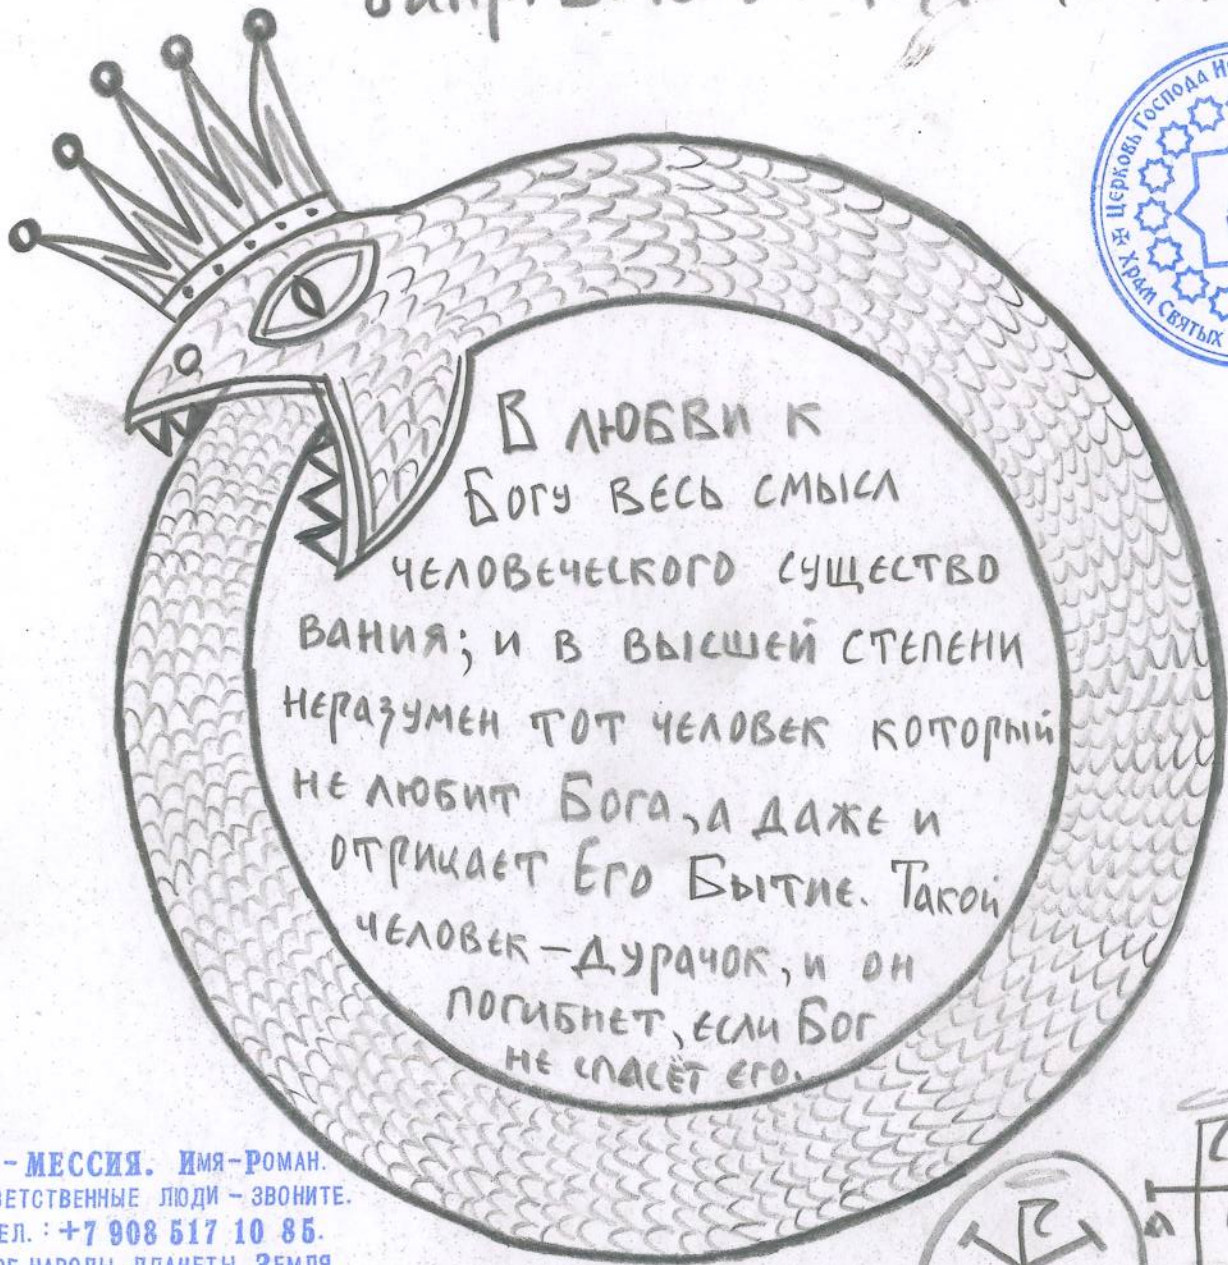 Церковь Господа
Храм Святых
В любви к
Богу весь смысл
человеческого существо
вания; и в высшей степени
неразумен тот человек который
не любит Бога, а даже и
отрицает Его Бытие. Такой
человек – дурачок, и он
погибнет, если Бог
не спасёт его.
– МЕССИЯ. Имя – Роман.
ЛЮДИ – ЗВОНИТЕ.
: +7 908 517 10 85.
НАРОДЫ ПЛАНЕТЫ ЗЕМЛЯ